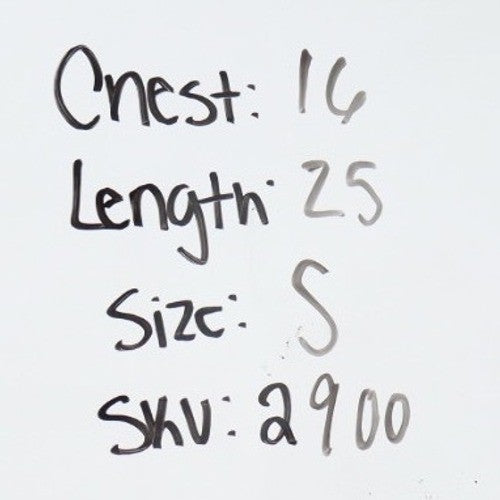 Chest: 16
Length: 25
Size: S
SKU: 2900